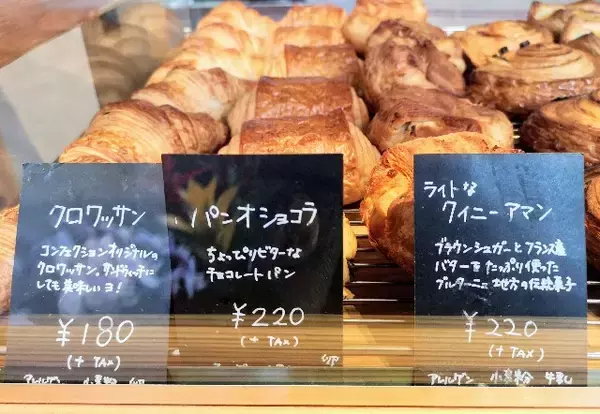 クロワッサン
コンフェクションオリジナルの
クロワッサン。サンドウィッチに
しても美味しいヨ!
¥180
(+ TAX)
アレルゲン 小麦粉 卵
パンオショコラ
ちょっぴりビターな
チョコレートパン
¥220
(+ TAX)
卵
ライトな
クイニーアマン
ブラウンシュガーとフランス産
バターをたっぷり使った
ブルターニュ地方の伝統菓子
¥220
(+ TAX)
アレルゲン 小麦粉 牛乳